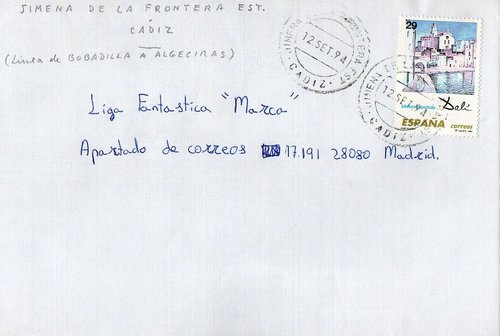 JIMENA DE LA FRONTERA EST.
CÁDIZ
(Línea de BOBADILLA A ALGECIRAS)
JIMENA DE LA FRONTERA EST.
12 SET. 94
CADIZ
29
JIMENA DE LA
12 SET. 94
CADIZ
Dalí
correos
ESPAÑA
Liga Fantastica "Marca"
Apartado de correos 17.191 28080 Madrid.